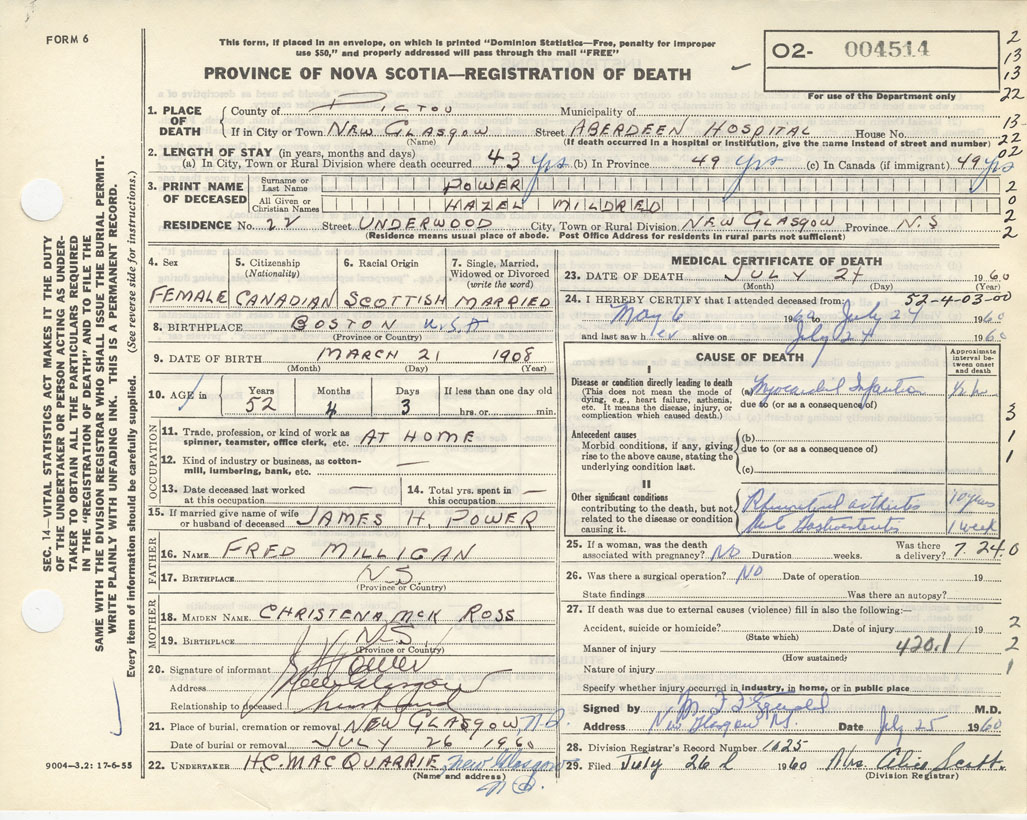 FORM 6
This form, if placed in an envelope, on which is printed "Dominion Statistics—Free, penalty for improper
use $50," and properly addressed will pass through the mail "FREE"
PROVINCE OF NOVA SCOTIA—REGISTRATION OF DEATH
02- 004514
For use of the Department only
2
13
13
22
1. PLACE OF DEATH
County of PICTOU Municipality of
If in City or Town NEW GLASGOW Street ABERDEEN HOSPITAL House No.
(Name) (If death occurred in a hospital or institution, give the name instead of street and number)
13
02
2. LENGTH OF STAY (in years, months and days)
(a) In City, Town or Rural Division where death occurred 43 yrs (b) In Province 49 yrs (c) In Canada (if immigrant) 49 yrs
3. PRINT NAME OF DECEASED
Surname or Last Name POWER
All Given or Christian Names HAZEL MILDRED
2
0
2
2
RESIDENCE No. 22 Street UNDERWOOD City, Town or Rural Division NEW GLASGOW Province N.S
(Residence means usual place of abode. Post Office Address for residents in rural parts not sufficient)
4. Sex
FEMALE
5. Citizenship
(Nationality)
CANADIAN
6. Racial Origin
SCOTTISH
7. Single, Married,
Widowed or Divorced
(write the word)
MARRIED
8. BIRTHPLACE BOSTON U.S.A
(Province or Country)
9. DATE OF BIRTH MARCH 21 1908
(Month) (Day) (Year)
10. AGE in
Years 52
Months 4
Days 3
If less than one day old
hrs. or min.
OCCUPATION
11. Trade, profession, or kind of work as
spinner, teamster, office clerk, etc. AT HOME
12. Kind of industry or business, as cotton-
mill, lumbering, bank, etc. —
13. Date deceased last worked
at this occupation —
14. Total yrs. spent in
this occupation —
15. If married give name of wife
or husband of deceased JAMES H. POWER
FATHER
16. NAME FRED MILLIGAN
17. BIRTHPLACE N.S.
(Province or Country)
MOTHER
18. MAIDEN NAME CHRISTENA McK ROSS
19. BIRTHPLACE N.S.
(Province or Country)
20. Signature of informant J H Power
Address New Glasgow
Relationship to deceased husband
21. Place of burial, cremation or removal NEW GLASGOW, N.S.
Date of burial or removal JULY 26 1960
22. UNDERTAKER H.C. MACQUARRIE New Glasgow
(Name and address)
N.S.
MEDICAL CERTIFICATE OF DEATH
23. DATE OF DEATH JULY 24 1960
(Month) (Day) (Year)
52-4-03-00
24. I HEREBY CERTIFY that I attended deceased from:
May 6 1960 to July 24 1960
and last saw her alive on July 24 1960
CAUSE OF DEATH
Approximate
interval be-
tween onset
and death
I
Disease or condition directly leading to death
(This does not mean the mode of
dying, e.g., heart failure, asthenia,
etc. It means the disease, injury, or
complication which caused death.)
(a) Myocardial Infarction
due to (or as a consequence of)
Antecedent causes
Morbid conditions, if any, giving
rise to the above cause, stating the
underlying condition last.
(b)
due to (or as a consequence of)
(c)
3
1
1
II
Other significant conditions
contributing to the death, but not
related to the disease or condition
causing it.
Rheumatoid arthritis 10 years
Gastroenteritis 1 week
25. If a woman, was the death
associated with pregnancy? NO Duration weeks. Was there
a delivery? 7.24.0
26. Was there a surgical operation? NO Date of operation 19
State findings Was there an autopsy?
27. If death was due to external causes (violence) fill in also the following:—
Accident, suicide or homicide? Date of injury 19
(State which)
Manner of injury 420.1
(How sustained)
Nature of injury
2
2
1
Specify whether injury occurred in industry, in home, or in public place
Signed by M.D.
Address New Glasgow Date July 25 1960
28. Division Registrar's Record Number 1625
29. Filed July 26 1960 Mrs. Alice Scott
(Division Registrar)
SEC. 14—VITAL STATISTICS ACT MAKES IT THE DUTY
OF THE UNDERTAKER OR PERSON ACTING AS UNDER-
TAKER TO OBTAIN ALL THE PARTICULARS REQUIRED
IN THE "REGISTRATION OF DEATH" AND TO FILE THE
SAME WITH THE DIVISION REGISTRAR WHO SHALL ISSUE THE BURIAL PERMIT.
WRITE PLAINLY WITH UNFADING INK. THIS IS A PERMANENT RECORD.
Every item of information should be carefully supplied. (See reverse side for instructions.)
9004—3.2: 17-6-55